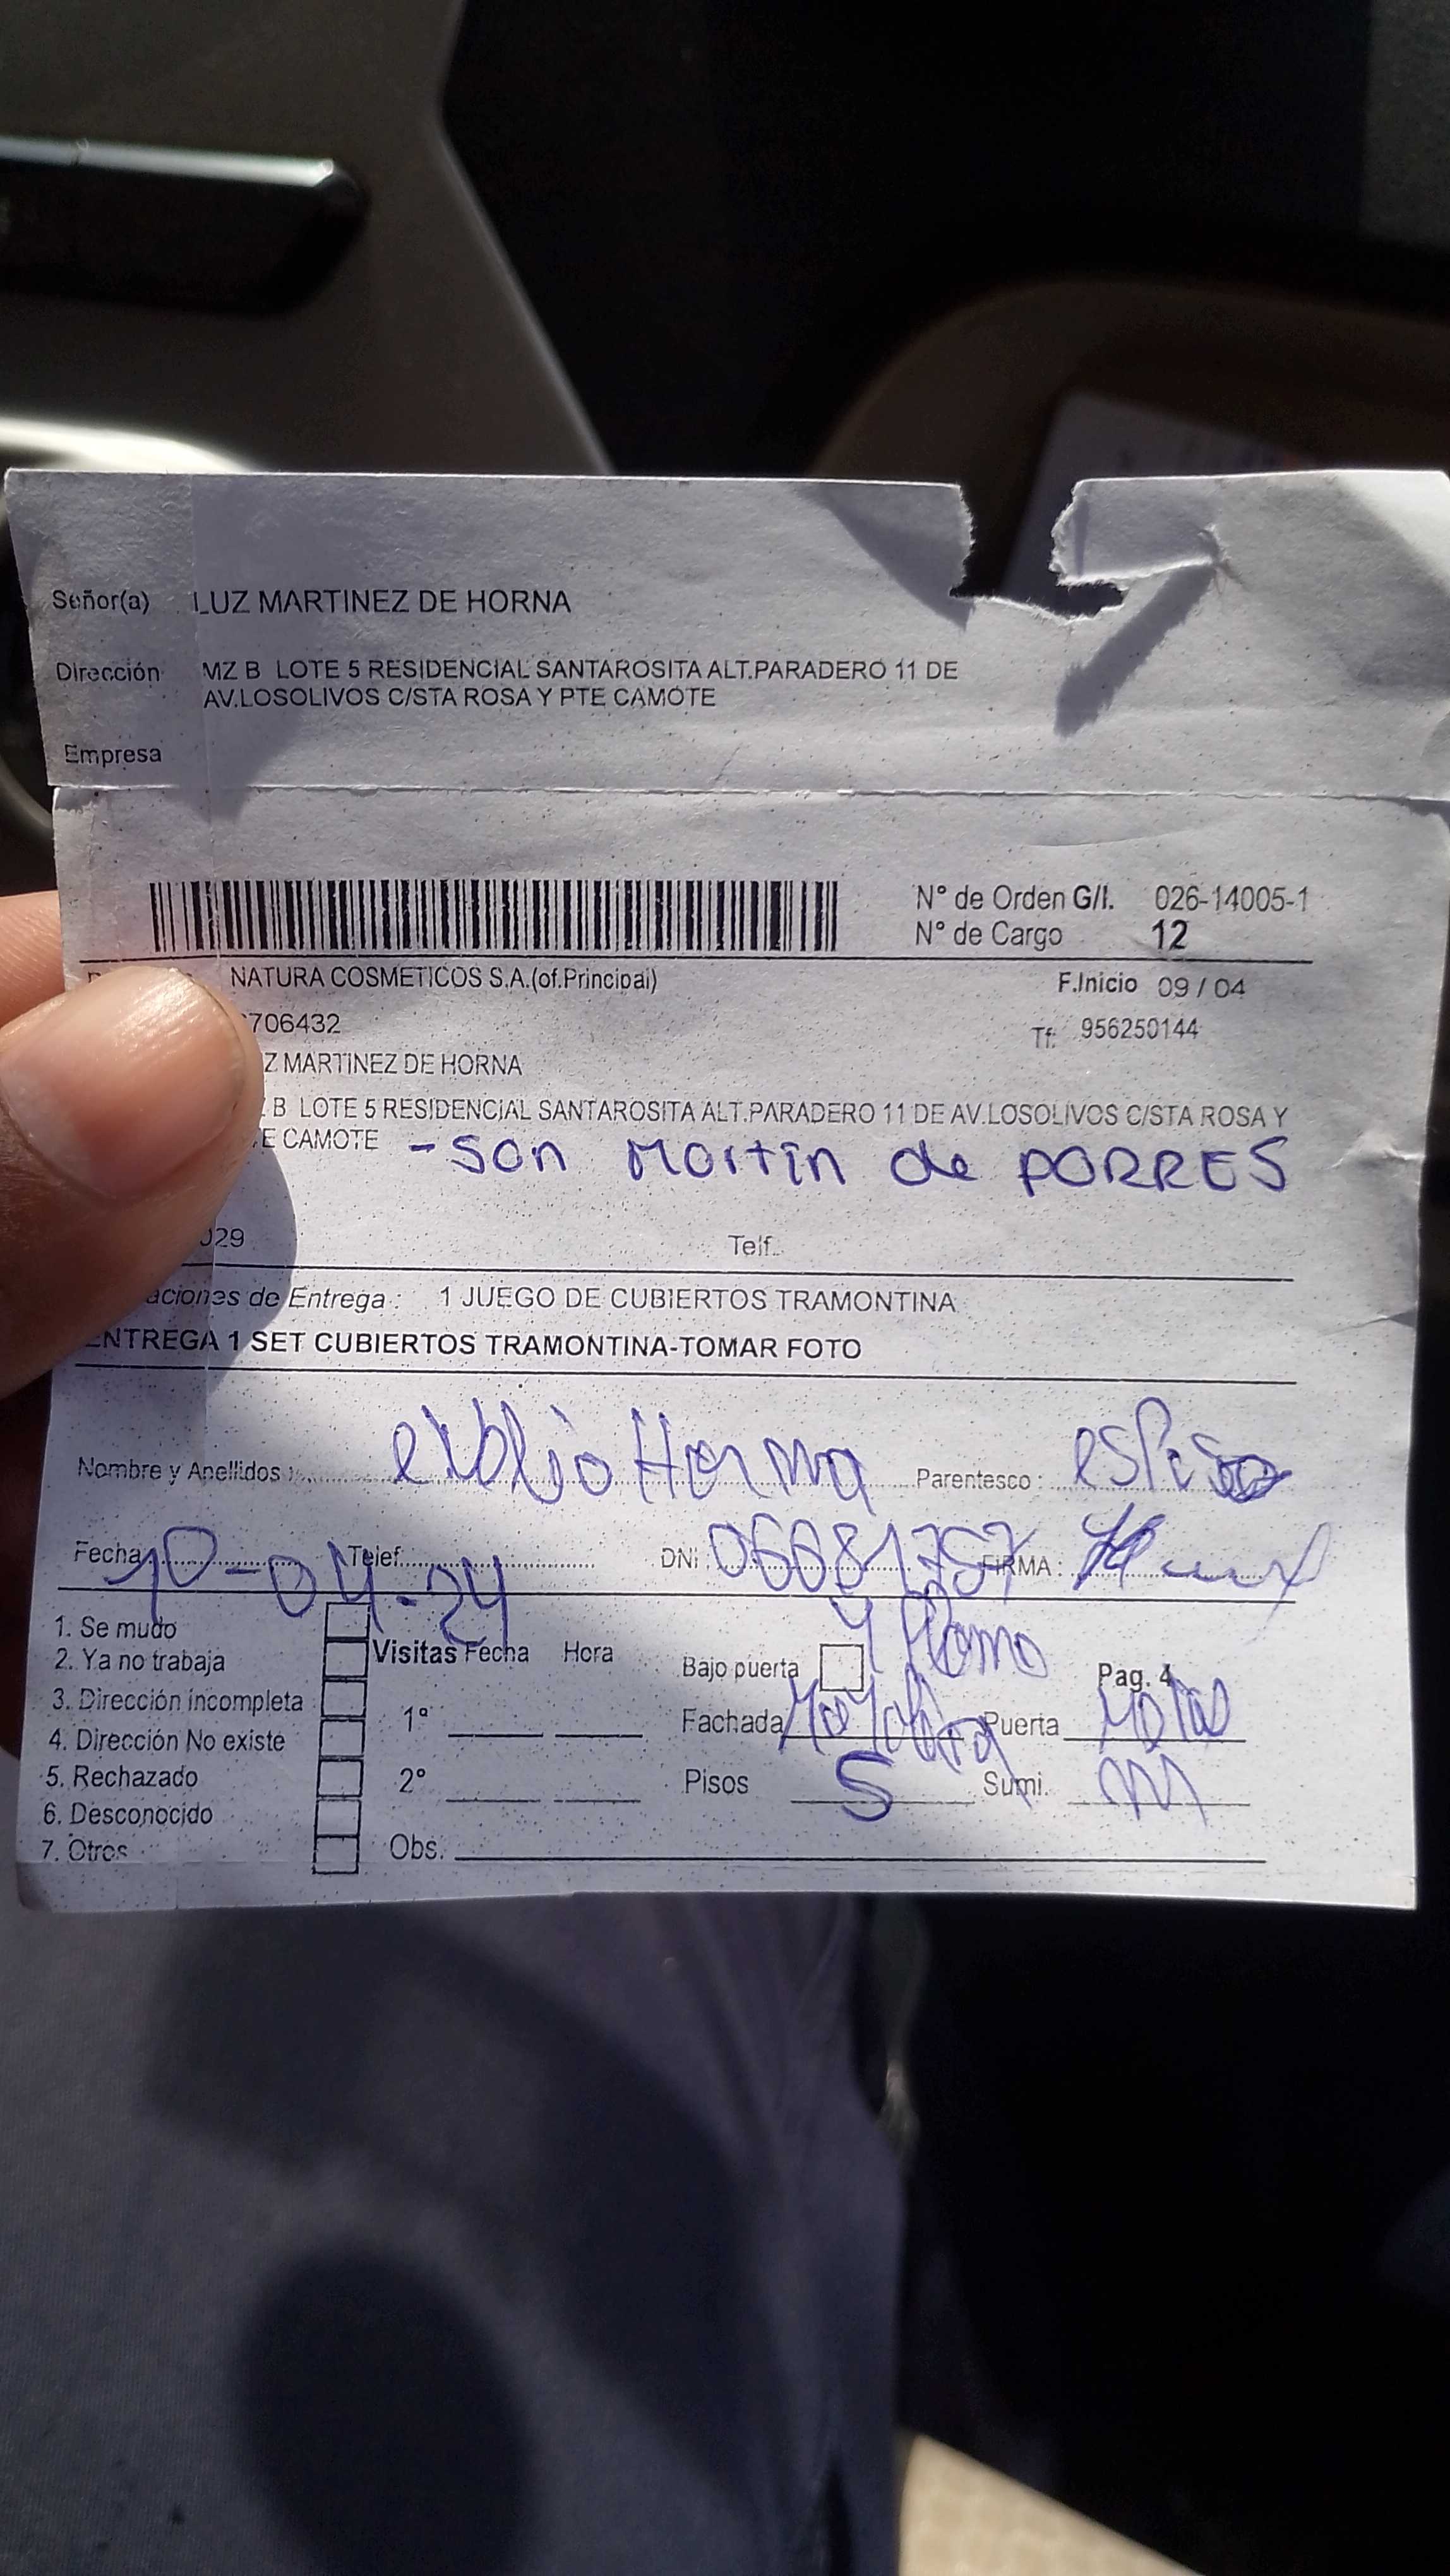 Señor(a) LUZ MARTINEZ DE HORNA
Dirección MZ B LOTE 5 RESIDENCIAL SANTAROSITA ALT.PARADERO 11 DE
AV.LOSOLIVOS C/STA ROSA Y PTE CAMOTE
Empresa
N° de Orden G/I. 026-14005-1
N° de Cargo 12
NATURA COSMETICOS S.A.(of.Principal) F.Inicio 09 / 04
706432 Tf: 956250144
Z MARTINEZ DE HORNA
B LOTE 5 RESIDENCIAL SANTAROSITA ALT.PARADERO 11 DE AV.LOSOLIVOS C/STA ROSA Y
E CAMOTE - San Martin de PORRES
029 Telf.
aciones de Entrega : 1 JUEGO DE CUBIERTOS TRAMONTINA
ENTREGA 1 SET CUBIERTOS TRAMONTINA-TOMAR FOTO
Nombre y Apellidos : Horna Parentesco : esposo
Fecha 10-04-24 Telef. DNI : 06681757 FIRMA :
1. Se mudo
2. Ya no trabaja
3. Dirección incompleta
4. Dirección No existe
5. Rechazado
6. Desconocido
7. Otros
Visitas Fecha Hora
1ª
2º
Obs.
Bajo puerta Pag. 4
Fachada Puerta
Pisos 5 Sumi.